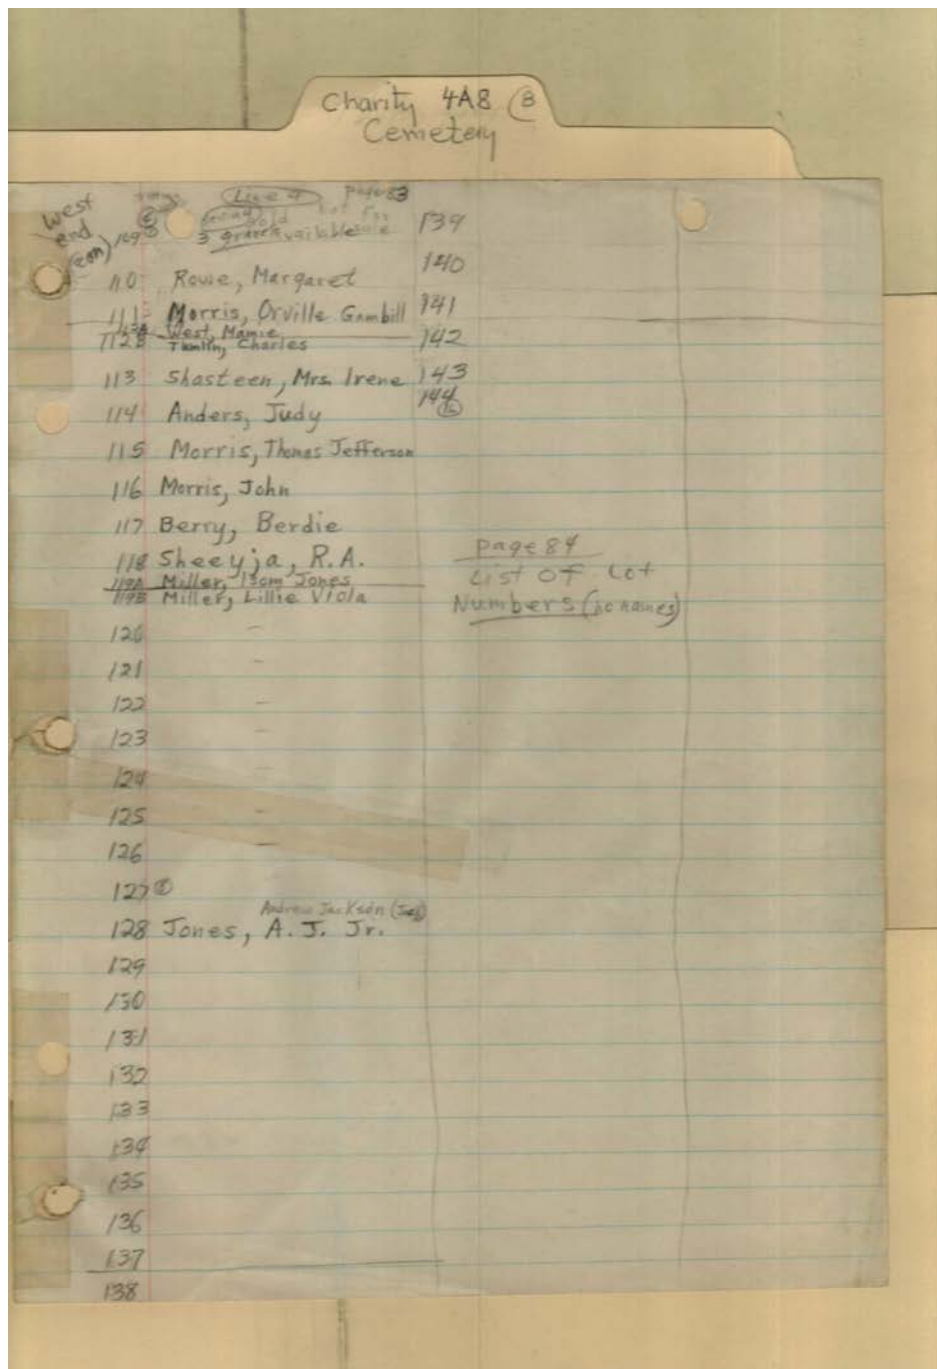 Charity 4A8 B
Cemetery
West
end
Line 9 page 83
109
sold not for
3 graves available sale
110 Rowe, Margaret
111 Morris, Orville Gambill
112A West, Mamie
112B Tumlin, Charles
113 Shasteen, Mrs. Irene
114 Anders, Judy
115 Morris, Thomas Jefferson
116 Morris, John
117 Berry, Berdie
118 Sheeyja, R.A.
119A Miller, Isom Jones
119B Miller, Lillie Viola
120 -
121 -
122 -
123 -
124 -
125 -
126 -
127
Andrew Jackson
128 Jones, A. J. Jr.
129
130
131
132
133
134
135
136
137
138
139
140
141
142
143
144
page 84
List OF Lot
Numbers (no names)